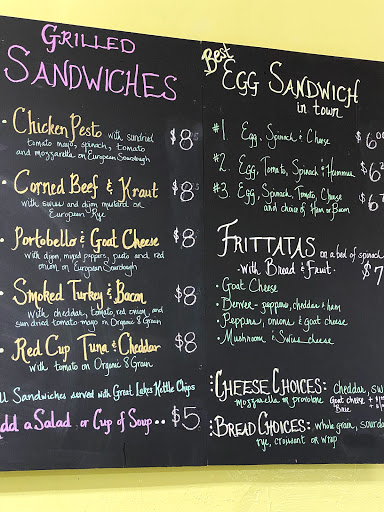 GRILLED
SANDWICHES
• Chicken Pesto with sundried $8
tomato mayo, spinach, tomato
and mozzarella on European Sourdough
• Corned Beef & Kraut $8
with swiss and dijon mustard on
European Rye
• Portobello & Goat Cheese $8
with dijon, mixed peppers, pesto and red
onion on European Sourdough
• Smoked Turkey & Bacon $8
with cheddar, tomato, red onion and
sun dried tomato mayo on Organic 8 Grain
• Red Cup Tuna & Cheddar $8
with tomato on Organic 8 Grain
Sandwiches served with Great Lakes Kettle Chips
Add a Salad or Cup of Soup •• $5
Best
EGG SANDWICH
in town
#1. Egg, Spinach & Cheese $6
#2. Egg, Tomato, Spinach & Hummus $6
#3. Egg, Spinach, Tomato, Cheese $6
and choice of Ham or Bacon
FRITTATAS on a bed of spinach
-with Bread & Fruit- $7
• Goat Cheese
• Denver- peppers, cheddar & ham
• Peppers, onions & goat cheese
• Mushroom & Swiss cheese
:CHEESE CHOICES: cheddar,
mozzarella or provolone Goat cheese
Brie
:BREAD CHOICES: whole grain,
rye, croissant or wrap